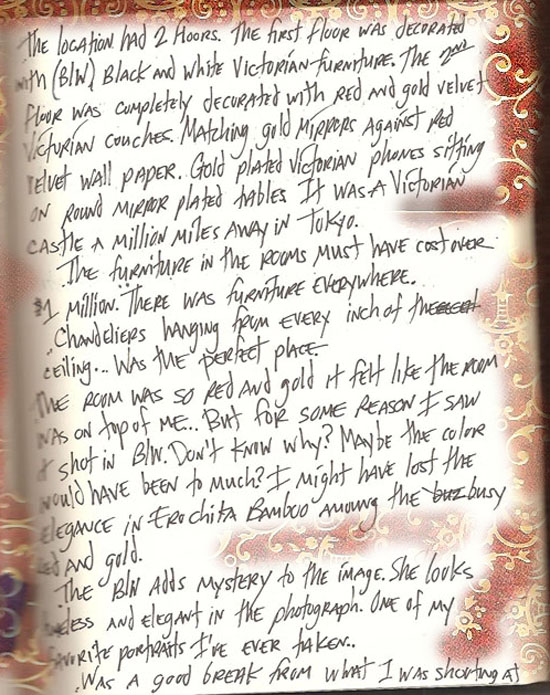 The location had 2 floors. The first floor was decorated
with (B/W) Black and white Victorian furniture. The 2nd
floor was completely decorated with red and gold velvet
Victorian couches. Matching gold mirrors against red
velvet wall paper. Gold plated Victorian phones sitting
on round mirror plated tables It was a Victorian
castle a million miles away in Tokyo.
The furniture in the rooms must have cost over
$1 million. There was furniture everywhere.
Chandeliers hanging from every inch of the
ceiling... was the perfect place.
The room was so red and gold it felt like the room
was on top of me.. But for some reason I saw
it shot in B/W. Don't know why? Maybe the color
would have been to much? I might have lost the
elegance in Erochita Bamboo amoung the buz busy
red and gold.
The B/W adds mystery to the image. She looks
timeless and elegant in the photograph. One of my
favorite portraits I've ever taken..
Was a good break from what I was shooting at